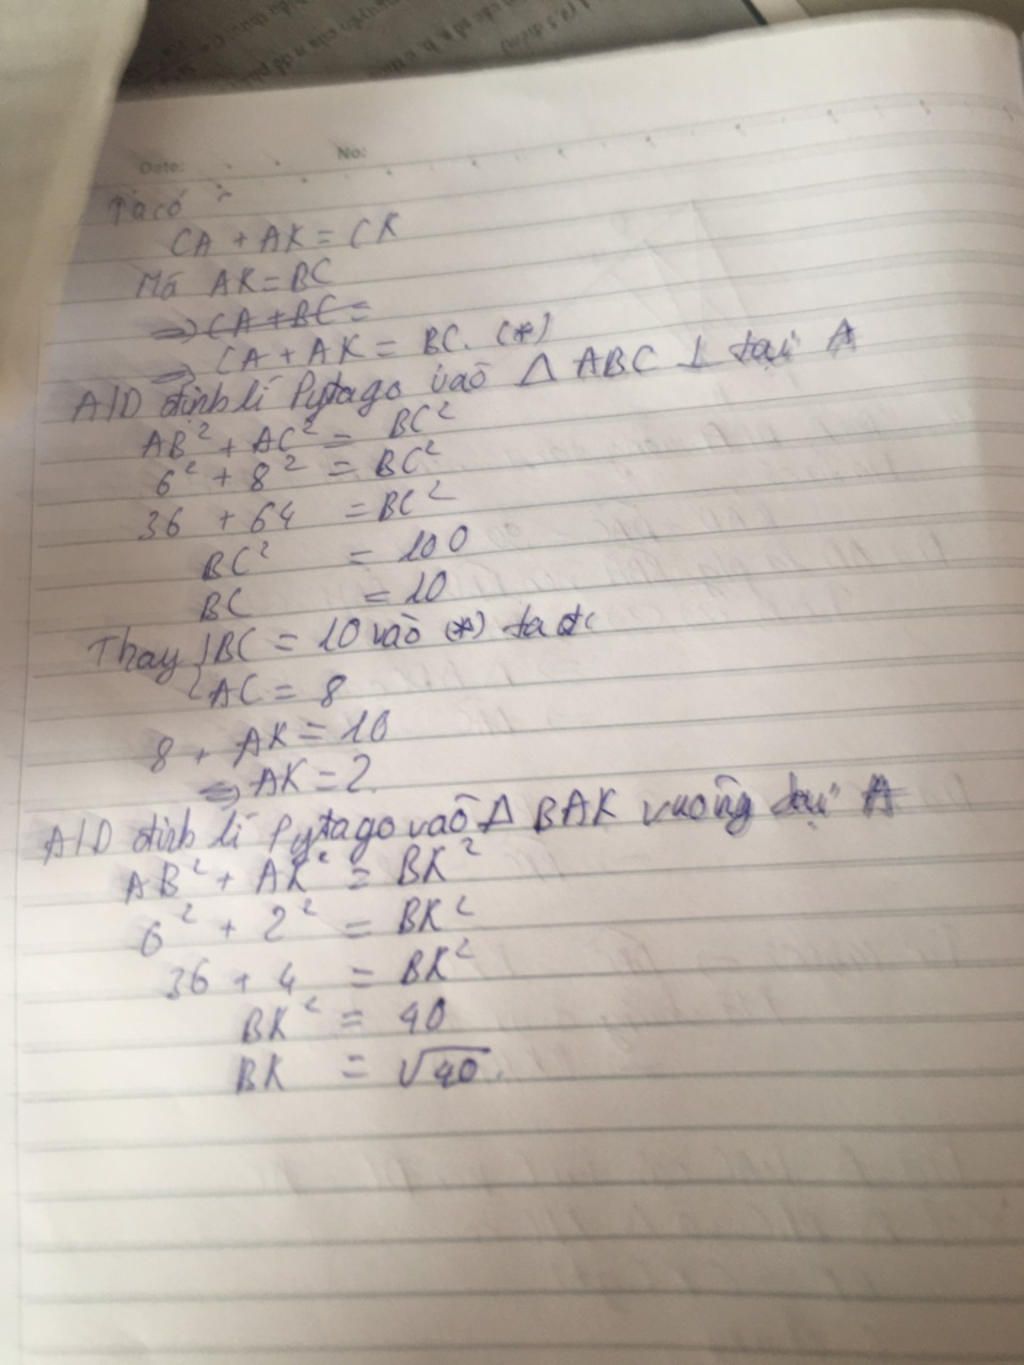 Date: No:
Ta có
CA + AK = CK
Mà AK = BC
⇒ CA + BC =
⇒ CA + AK = BC. (*)
A/D định lí Pytago vào Δ ABC ⊥ tại A
AB² + AC² = BC²
6² + 8² = BC²
36 + 64 = BC²
BC² = 100
BC = 10
Thay { BC = 10 vào (*) ta đc
AC = 8
8 + AK = 10
⇒ AK = 2.
A/D định lí Pytago vào Δ BAK vuông tại A
AB² + AK² = BK²
6² + 2² = BK²
36 + 4 = BK²
BK² = 40
BK = √40.